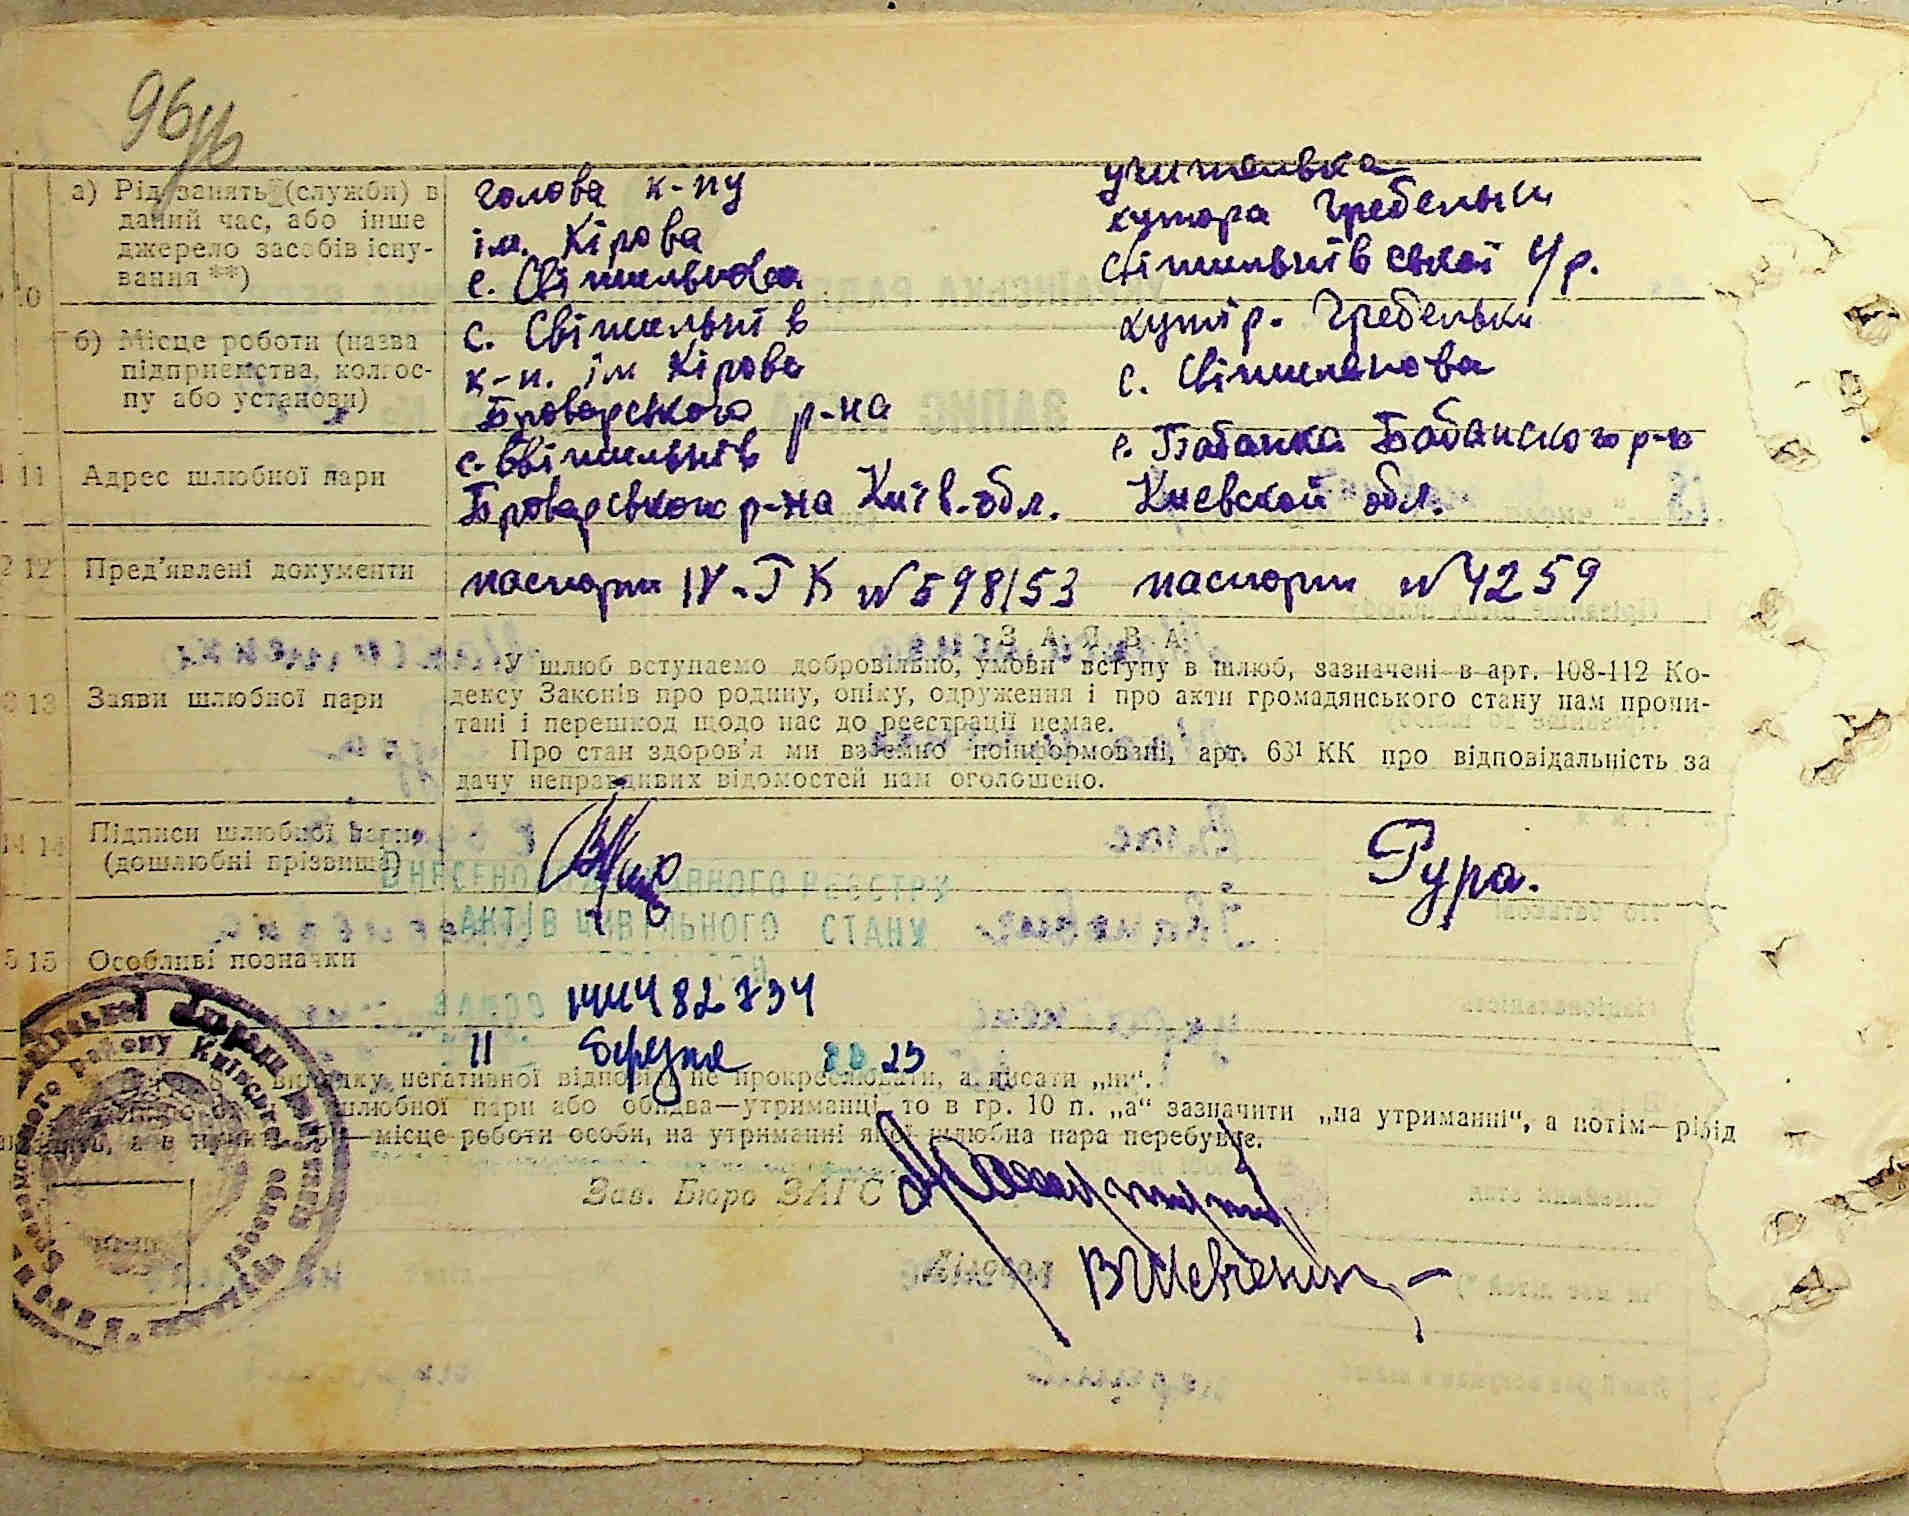 96
а) Рід занять (служби) в
даний час, або інше
джерело засобів існу-
вання **)
голова к-пу
ім. Кірова
с.
учителька
хутора Гребельки
Світильнівської с/р.
10
б) Місце роботи (назва
підприємства, колгос-
пу або установи)
с. Світильнів
к-п. ім Кірова
Броварського р-на
хутір. Гребельки
с.
11 Адрес шлюбної пари
с. Світильнів
Броварського р-на Київ. обл.
с. Бабанка Бабанского р-на
Киевской обл.
12 Пред'явлені документи
паспорт ІV-ГК № 598153
паспорт № 4259
13 Заяви шлюбної пари
ЗАЯВА
У шлюб вступаємо добровільно, умови вступу в шлюб, зазначені в арт. 108-112 Ко-
дексу Законів про родину, опіку, одруження і про акти громадянського стану нам прочи-
тані і перешкод щодо нас до реєстрації немає.
Про стан здоров'я ми взаємно поінформовані, арт. 63¹ КК про відповідальність за
дачу неправдивих відомостей нам оголошено.
14 Підписи шлюбної пари
(дошлюбні прізвища)
Гура.
ВНЕСЕНО ДО ДЕРЖАВНОГО РЕЄСТРУ
АКТІВ ЦИВІЛЬНОГО СТАНУ
15 Особливі позначки
482734
11 березня 2023
випадку негативної відповіді не прокреслювати, а писати „ні“.
шлюбної пари або обидва—утриманці, то в гр. 10 п. „а“ зазначити „на утриманні“, а потім—рід
місце роботи особи, на утриманні якої шлюбна пара перебуває.
Зав. Бюро ЗАГС
Діловод
ВШевченко
району Київської області